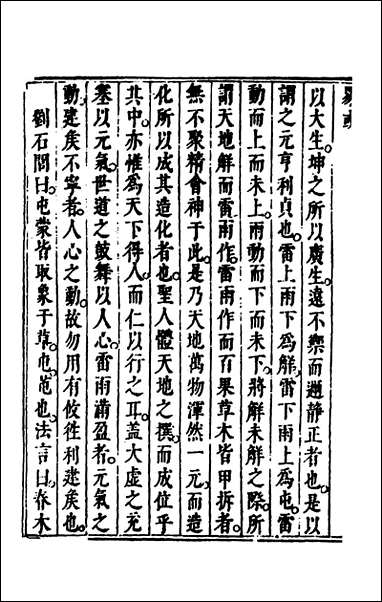 以大生坤之所以廣生遠不禦而邇靜正者也是以
謂之元亨利貞也雷上雨下爲解雷下雨上爲屯雷
動而上而未上雨動而下而未下將解未解之際所
謂天地解而雷雨作雷雨作而百果草木皆甲拆者
無不聚精會神于此是乃天地萬物渾然一元而造
化所以成其造化者也聖人體天地之撰而成位乎
其中亦惟爲天下得人而仁以行之耳盖大虛之充
塞以元氣世道之鼓舞以人心雷雨滿盈者元氣之
動建矦不寧者人心之動故勿用有攸徃利建矦也
劉石閭曰屯蒙皆取象于草屯芚也法言曰春木